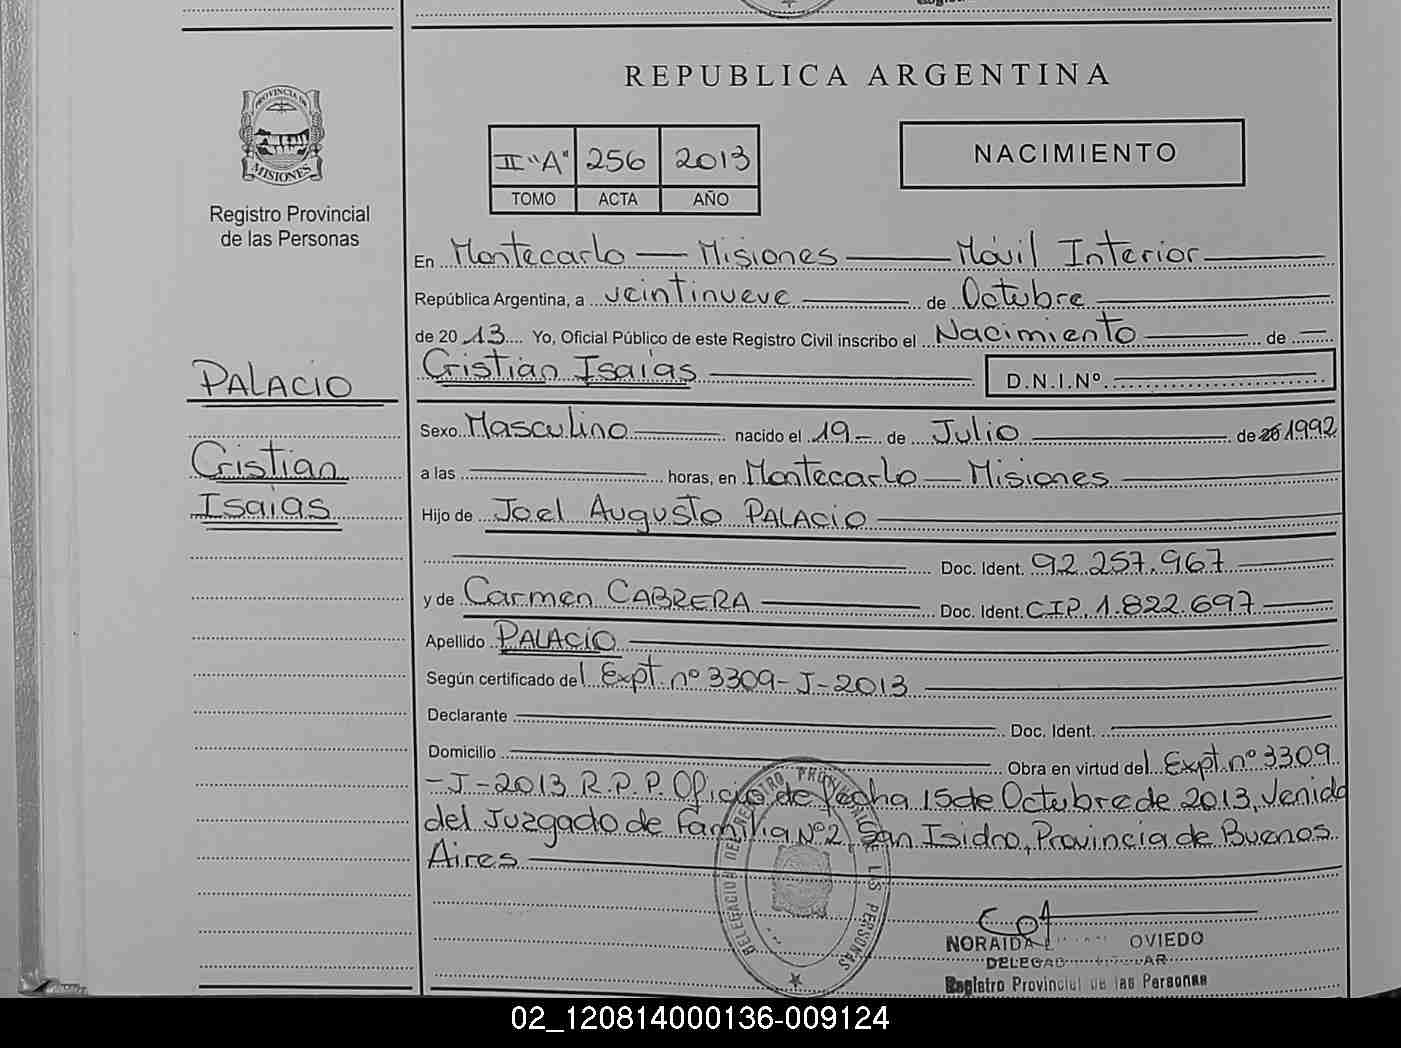 REPUBLICA ARGENTINA
PROVINCIA DE
MISIONES
Registro Provincial
de las Personas
II "A" 256 2013
TOMO ACTA AÑO
NACIMIENTO
En Montecarlo — Misiones — Móvil Interior
República Argentina, a veintinueve de Octubre
de 2013 Yo, Oficial Público de este Registro Civil inscribo el Nacimiento de
Cristian Isaías
D.N.I.Nº
PALACIO
Cristian
Isaías
Sexo Masculino nacido el 19 de Julio de 20 1992
a las horas, en Montecarlo — Misiones
Hijo de Joel Augusto PALACIO
Doc. Ident. 92.257.967
y de Carmen CABRERA Doc. Ident. CIP. 1.822.697
Apellido PALACIO
Según certificado del Expt. nº 3309-J-2013
Declarante Doc. Ident.
Domicilio Obra en virtud del Expt. nº 3309
-J-2013 R.P.P. Oficio de fecha 15 de Octubre de 2013, venido
del Juzgado de Familia Nº 2, San Isidro, Provincia de Buenos
Aires
DELEGACION DEL REGISTRO PROVINCIAL DE LAS PERSONAS
NORAIDA OVIEDO
Registro Provincial de las Personas
02_120814000136-009124